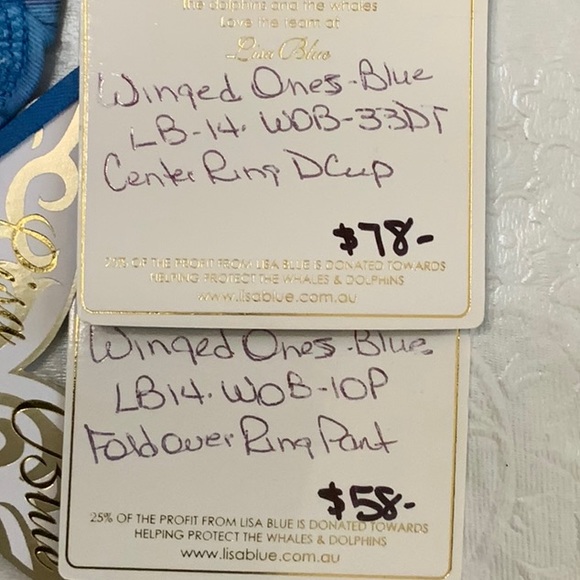 the dolphins and the whales
Love the team at
Lisa Blue
Winged Ones-Blue
LB-14. WOB-33DT
Center Ring DCup
$78-
25% OF THE PROFIT FROM LISA BLUE IS DONATED TOWARDS
HELPING PROTECT THE WHALES & DOLPHINS
www.lisablue.com.au
Winged Ones-Blue
LB14. WOB-10P
Foldover Ring Pant
$58-
25% OF THE PROFIT FROM LISA BLUE IS DONATED TOWARDS
HELPING PROTECT THE WHALES & DOLPHINS
www.lisablue.com.au
Lisa
Blue